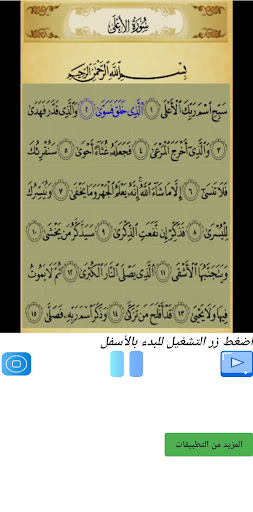 سُورَةُ الأَعْلَى
بِسْمِ اللَّهِ الرَّحْمَٰنِ الرَّحِيمِ
سَبِّحِ اسْمَ رَبِّكَ الْأَعْلَى ١ الَّذِي خَلَقَ فَسَوَّىٰ ٢ وَالَّذِي قَدَّرَ فَهَدَىٰ
٣ وَالَّذِي أَخْرَجَ الْمَرْعَىٰ ٤ فَجَعَلَهُ غُثَاءً أَحْوَىٰ ٥ سَنُقْرِئُكَ
فَلَا تَنسَىٰ ٦ إِلَّا مَا شَاءَ اللَّهُ إِنَّهُ يَعْلَمُ الْجَهْرَ وَمَا يَخْفَىٰ ٧ وَنُيَسِّرُكَ
لِلْيُسْرَىٰ ٨ فَذَكِّرْ إِن نَّفَعَتِ الذِّكْرَىٰ ٩ سَيَذَّكَّرُ مَن يَخْشَىٰ ١٠
وَيَتَجَنَّبُهَا الْأَشْقَى ١١ الَّذِي يَصْلَى النَّارَ الْكُبْرَىٰ ١٢ ثُمَّ لَا يَمُوتُ
فِيهَا وَلَا يَحْيَىٰ ١٣ قَدْ أَفْلَحَ مَن تَزَكَّىٰ ١٤ وَذَكَرَ اسْمَ رَبِّهِ فَصَلَّىٰ ١٥
اضغط زر التشغيل للبدء بالأسفل
المزيد من التطبيقات